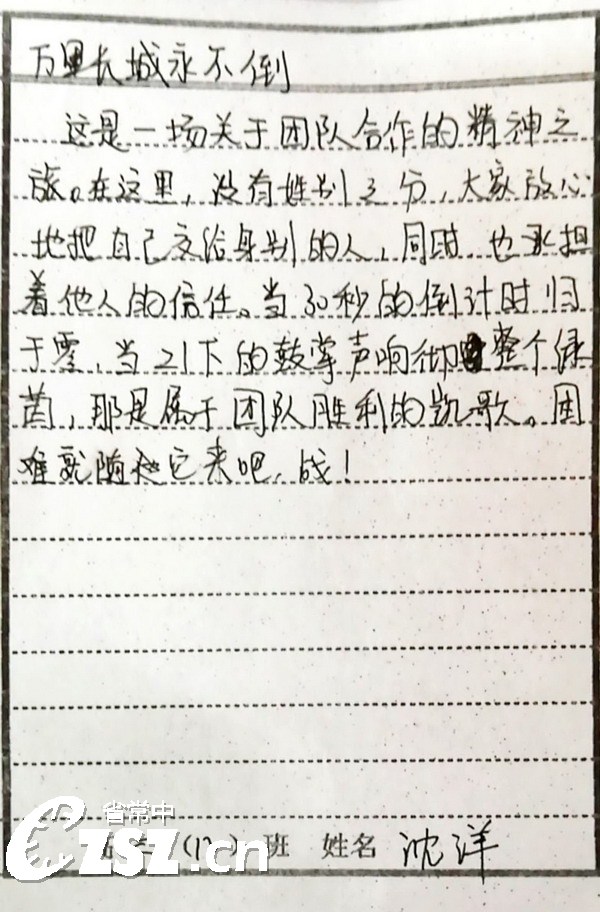 万里长城永不倒
这是一场关于团队合作的精神之
旅。在这里，没有性别之分，大家放心
地把自己交给身别的人，同时也承担
着他人的信任。当30秒的倒计时归
于零，当21下的鼓掌声响彻整个绿
茵，那是属于团队胜利的凯歌。困
难就随它来吧，战！
省常中
CZSZ.cn
班 姓名 沈洋